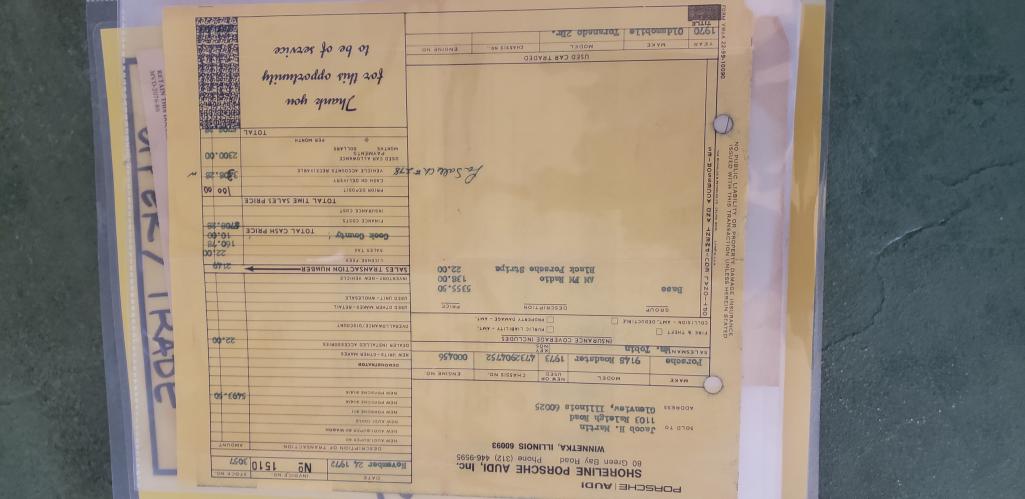 PORSCHE AUDI
SHORELINE PORSCHE AUDI, Inc.
80 Green Bay Road Phone (312) 446-9595
WINNETKA, ILLINOIS 60093
DATE
November 24 1972
INVOICE NO.
No 1510
STOCK NO.
3057
SOLD TO Jacob H. Martin
1103 Raleigh Road
ADDRESS Glenview, Illinois 60025
MAKE MODEL NEW OR USED CHASSIS NO. ENGINE NO.
Porsche 914S Roadster 1973 000456
SALESMAN Wm. Tobin KEY NOS
INSURANCE COVERAGE INCLUDES
FIRE & THEFT PUBLIC LIABILITY - AMT.
COLLISION - AMT. DEDUCTIBLE PROPERTY DAMAGE - AMT.
GROUP DESCRIPTION PRICE
Base 5355.50
AM FM Radio 138.00
Black Porsche Stripe 22.00
DESCRIPTION OF TRANSACTION AMOUNT
NEW AUDI SUPER 90
NEW AUDI SUPER 90 WAGON
NEW AUDI 100LS
NEW PORSCHE 911
NEW PORSCHE 914/4
NEW PORSCHE 914/6
5493.50
DEMONSTRATOR
NEW UNITS-OTHER MAKES
DEALER INSTALLED ACCESSORIES 22.00
OVERALLOWANCE/DISCOUNT
USED OTHER MAKES-RETAIL
USED UNIT-WHOLESALE
INVENTORY-NEW VEHICLE
SALES TRANSACTION NUMBER 2149
LICENSE FEES 22.00
SALES TAX 160.78
Cook County 10.00
TOTAL CASH PRICE 5708.28
FINANCE COSTS
INSURANCE COST
TOTAL TIME SALES PRICE
PRIOR DEPOSIT 100 00
CASH ON DELIVERY
VEHICLE ACCOUNTS RECEIVABLE 3308.28
USED CAR ALLOWANCE 2300.00
PAYMENTS
MONTHS DOLLARS
PER MONTH
TOTAL 5708.28
Thank you
for this opportunity
to be of service
USED CAR TRADED
YEAR MAKE MODEL CHASSIS NO. ENGINE NO.
1970 Oldsmobile Toronado 2Dr.
TITLE
NO PUBLIC LIABILITY OR PROPERTY DAMAGE INSURANCE
ISSUED WITH THIS TRANSACTION UNLESS HEREIN STATED
TRADE